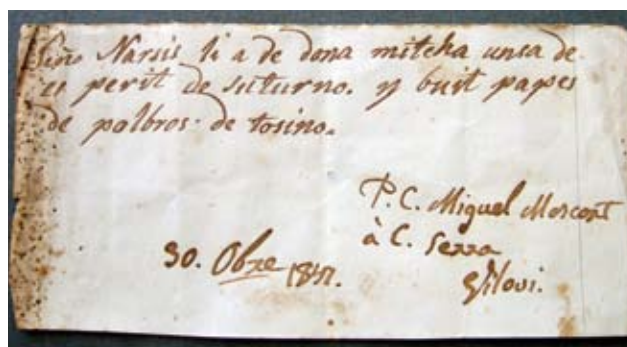 Siño Narsis li a de dona mitcha unsa de
es perit de suturno. y buit papes
de polbros de tosino.
P.C. Miguel Morcont
à C. Serra
Gilovi.
30. Obre 1851.